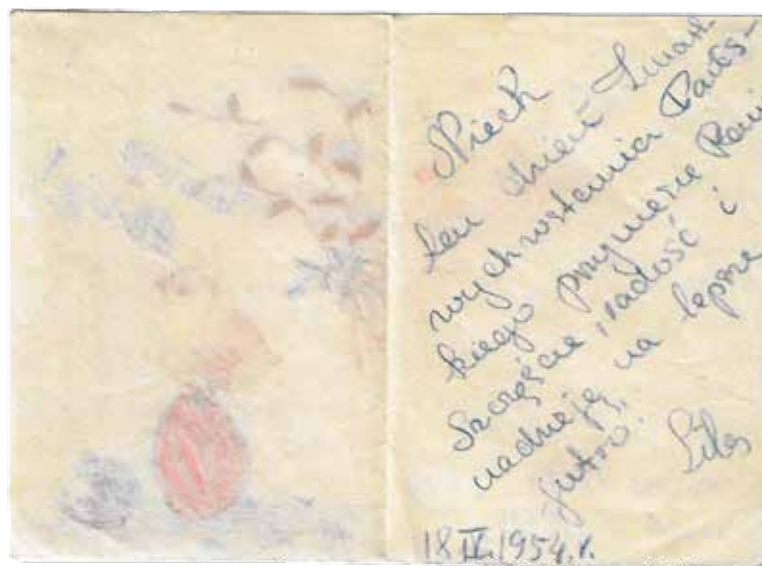 Niech
ten dzień Zmart-
wychwstania Pańs-
kiego przyniesie Pani
szczęście, radość i
nadzieję na lepsze
jutro.
18 IV. 1954. r.